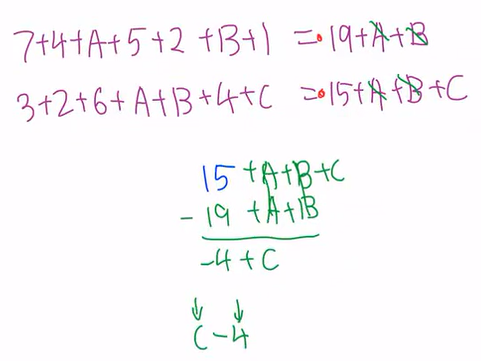 7+4+A+5+2+B+1 = 19+A+B
3+2+6+A+B+4+C = 15+A+B+C
15+A+B+C
- 19+A+B
-4+C
↓ ↓
C-4